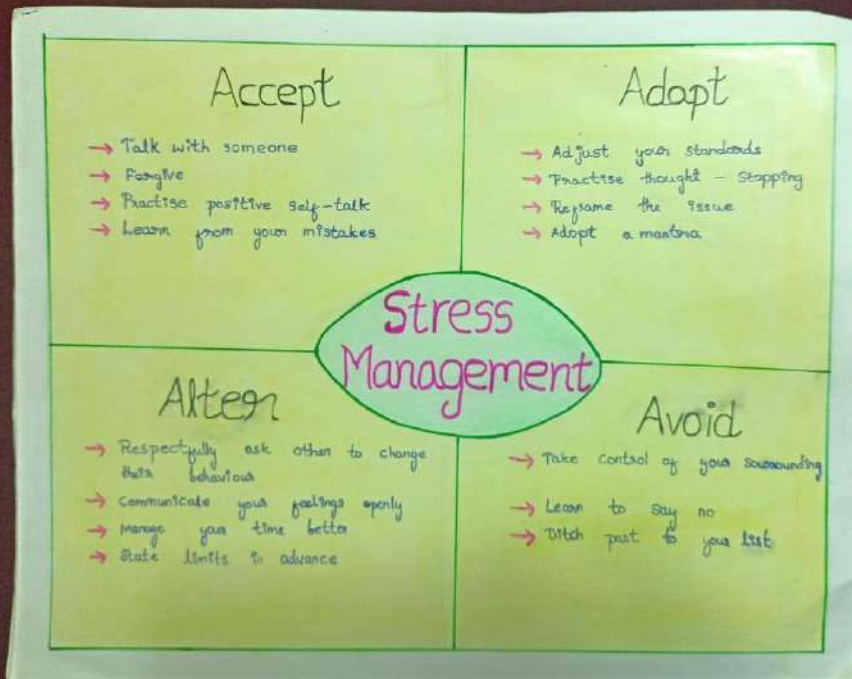 Accept
→ Talk with someone
→ Forgive
→ Practise positive self-talk
→ Learn from your mistakes
Adapt
→ Adjust your standards
→ Practise thought - stopping
→ Reframe the issue
→ Adopt a mantra
Stress
Management
Alter
→ Respectfully ask other to change
their behaviour
→ Communicate your feelings openly
→ Manage your time better
→ State limits in advance
Avoid
→ Take control of your sourounding
→ Learn to say no
→ Ditch past to your list